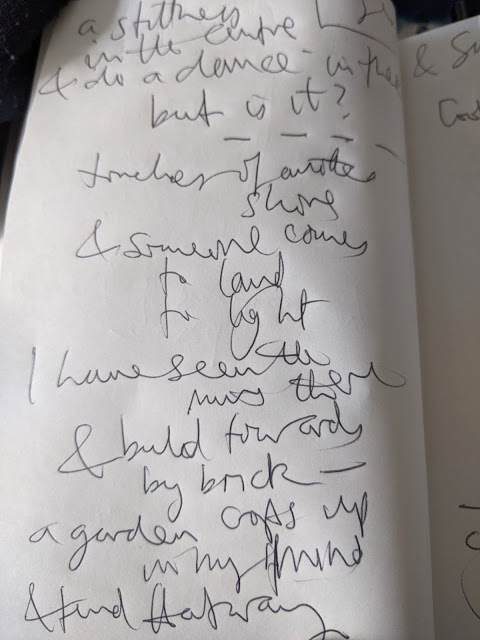 a stillness
in the centre
& do a dance in the
but is it?
touches of another
shore
& someone comes
to land
to light
I have seen the
there
& build towards
by brick —
a garden up
in my mind
& find that way
& S